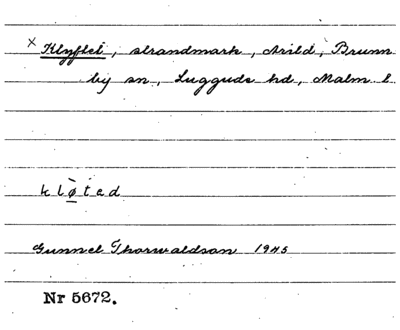 × Klyftet, strandmark, Arild, Brunn
by sn, Luggude hd, Malm. l.
kl&#x1ECD;̀ted
Gunnel Thorwaldson 1945
Nr 5672.